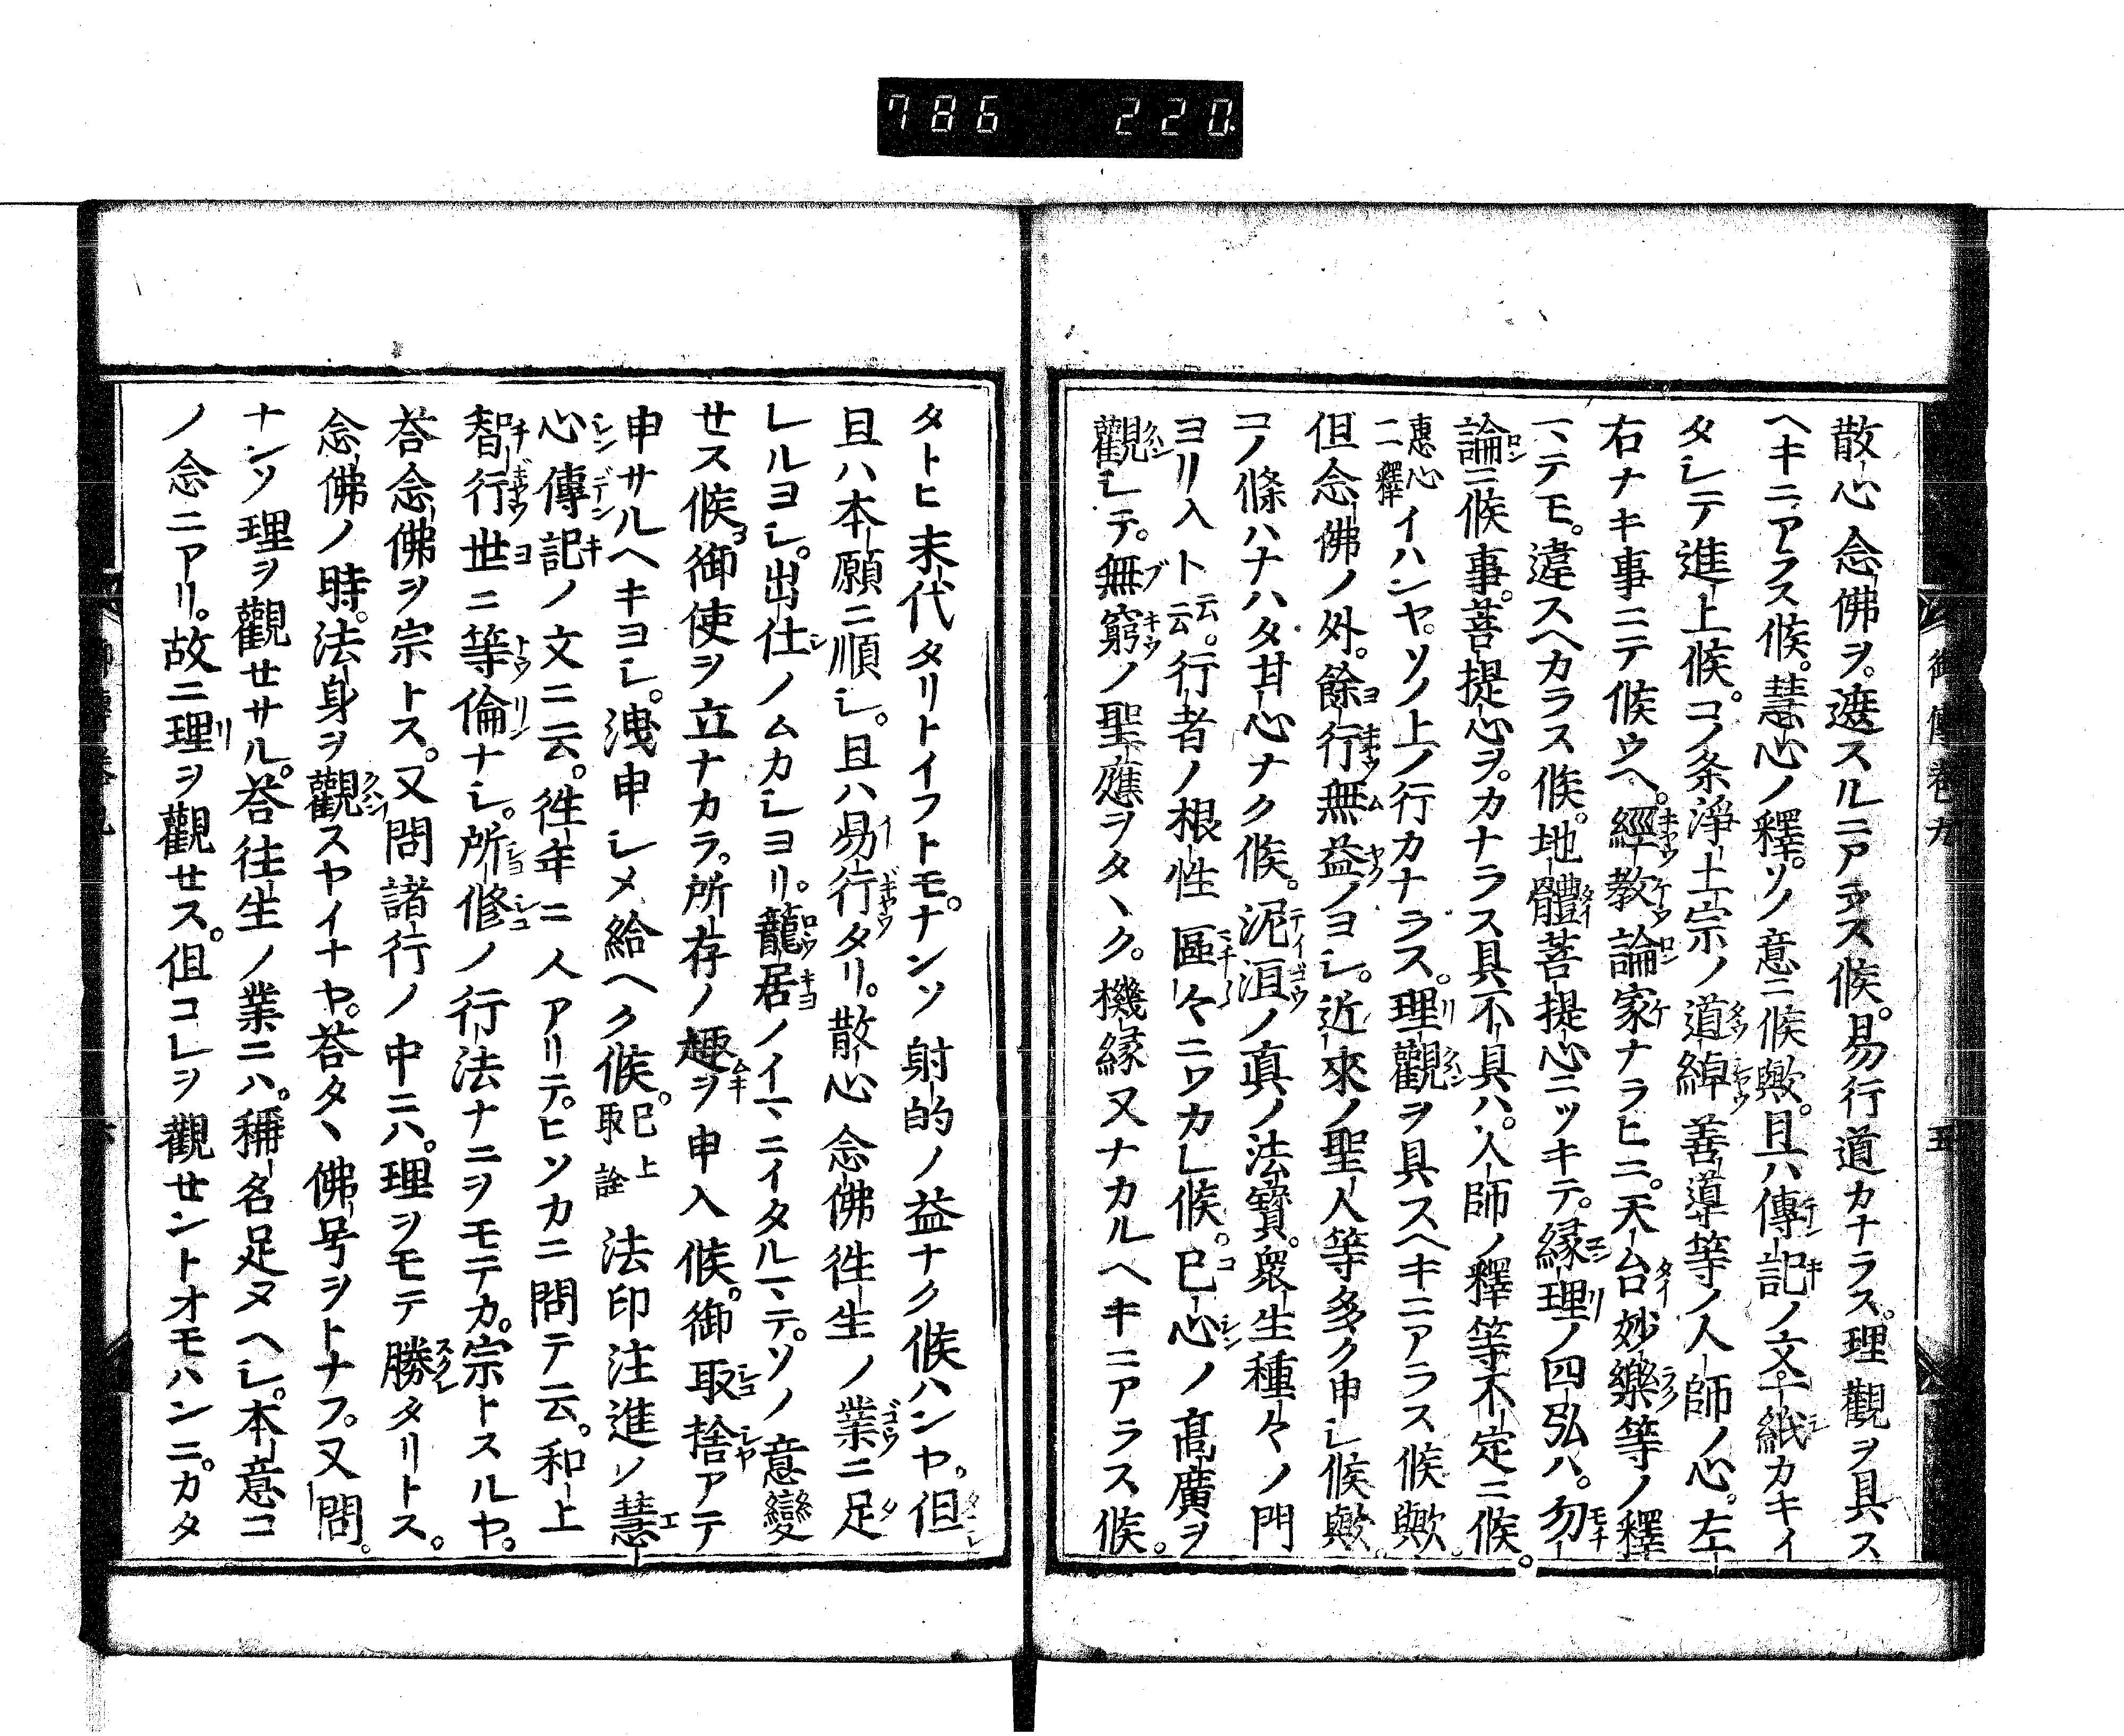 786 220
散心念佛ヲ。遮スルニアラス候。易行道カナラス。理觀ヲ具ス
ヘキニアラス候。慧心ノ釋。ソノ意ニ候歟。且ハ傳記ノ文。一紙カキイ
タレテ進上候。コノ条淨土宗ノ道綽善導等ノ人師ノ心。左
右ナキ事ニテ候ウヘ。經教論家ナラヒニ。天台妙樂等ノ釋
ニテモ。違スヘカラス候。地體菩提心ニツキテ。縁理ノ四弘ハ。勿
論ニ候事。菩提心ヲ。カナラス具不具ハ。人師ノ釋等不定ニ候。
惠心二釋イハンヤ。ソノ上ノ行カナラス。理觀ヲ具スヘキニアラス候歟。
但念佛ノ外。餘行無益ノヨシ。近來ノ聖人等多ク申シ候歟。
コノ條ハナハタ其心ナク候。泥洹ノ真ノ法寶。衆生種々ノ門
ヨリ入ト云云。行者ノ根性區々ニワカレ候。已心ノ高廣ヲ
觀シテ。無窮ノ聖應ヲタヽク。機縁又ナカルヘキニアラス候。
タトヒ末代タリトイフトモ。ナンソ射的ノ益ナク候ハンヤ。但
且ハ本願ニ順シ。且ハ易行タリ。散心念佛徃生ノ業ニ足
レルヨシ。出仕ノムカシヨリ。籠居ノイマニイタルマテ。ソノ意變
セス候。御使ヲ立ナカラ。所存ノ趣ヲ申入候。御取捨アテ
申サルヘキヨシ。洩申シメ給ヘク候。已上取詮 法印注進ノ慧
心傳記ノ文ニ云。徃年ニ人アリテ。ヒソカニ問テ云。和上
智行世ニ等倫ナシ。所修ノ行法ナニヲモテカ。宗トスルヤ。
荅念佛ヲ宗トス。又問諸行ノ中ニハ。理ヲモテ勝タリトス。
念佛ノ時。法身ヲ觀スヤイナヤ。荅タヽ佛号ヲトナフ。又問。
ナンソ理ヲ觀セサル。荅往生ノ業ニハ。稱名足ヌヘシ。本意コ
ノ念ニアリ。故ニ理ヲ觀セス。但コレヲ觀センニトオモハンニ。カタ